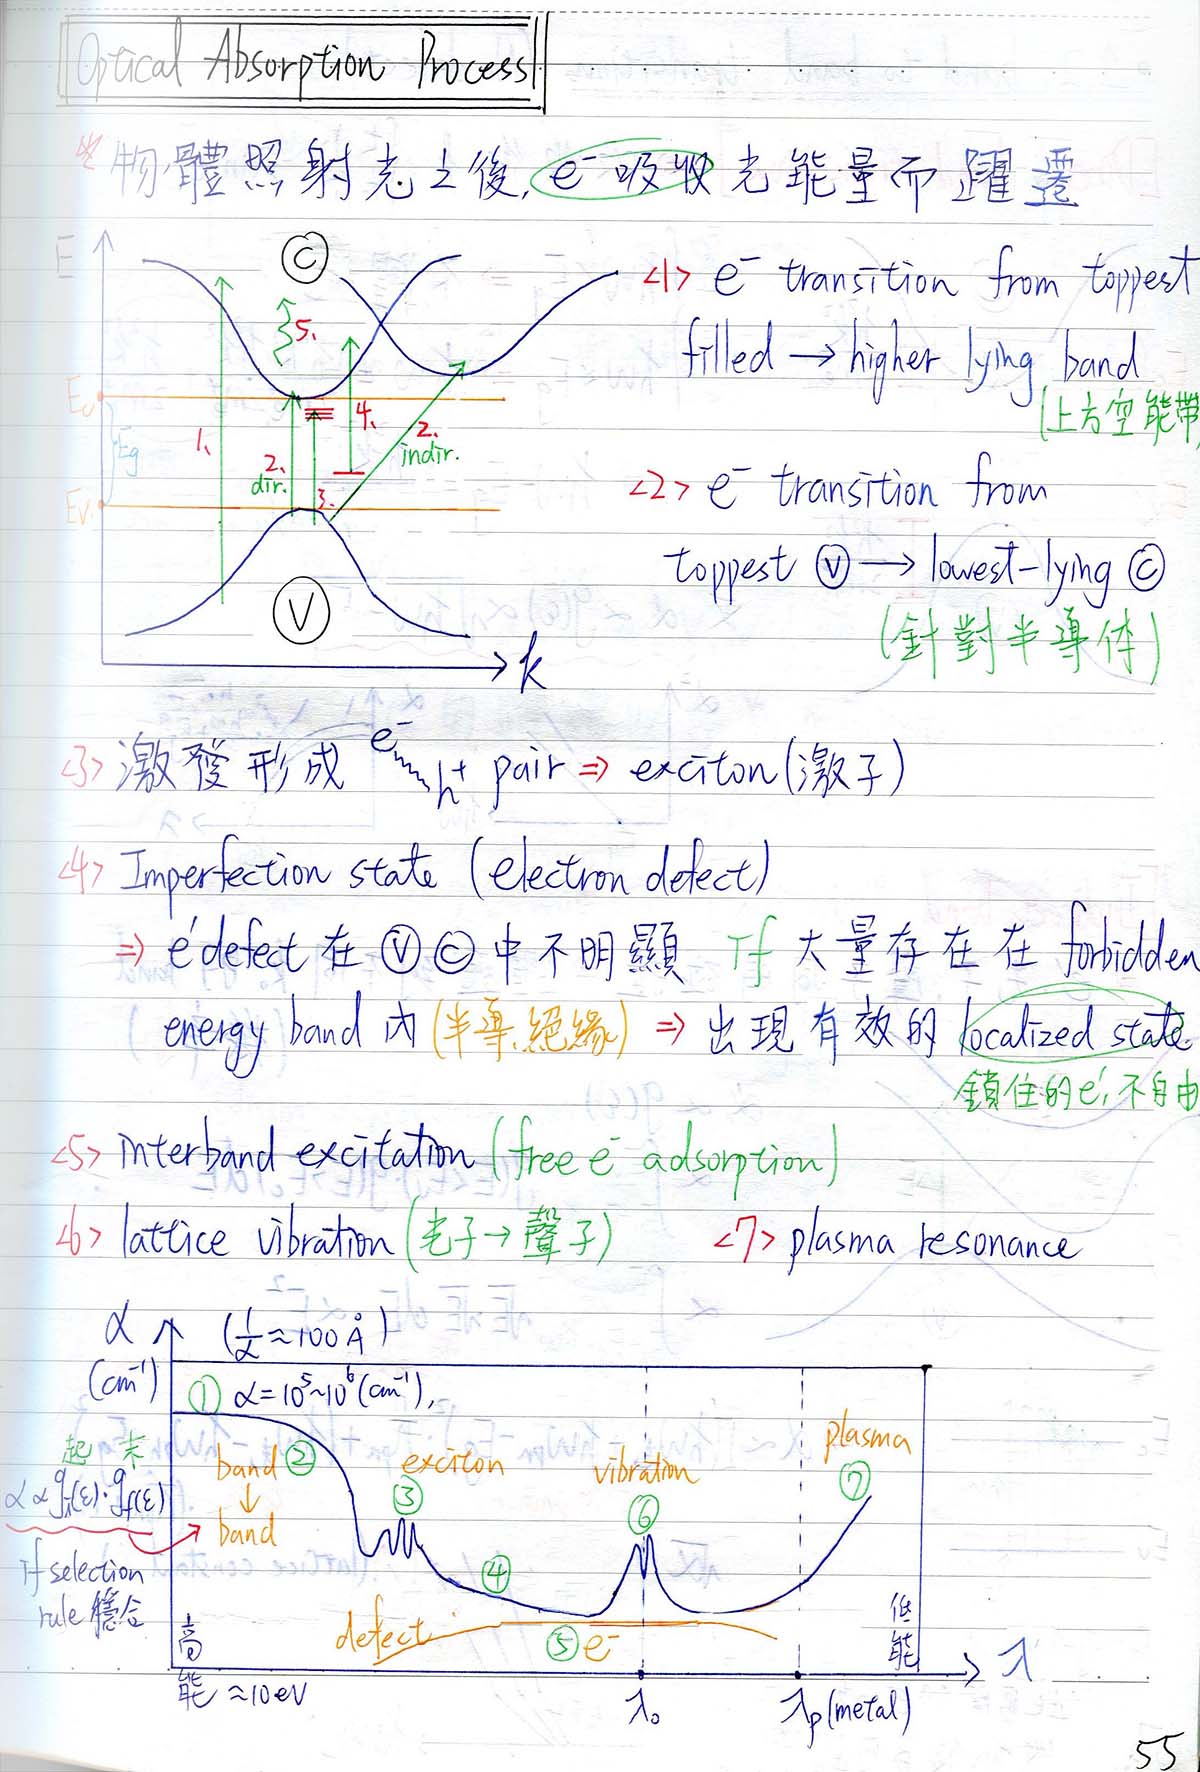 Optical Absorption Process
物體照射光之後, e⁻吸收光能量而躍遷
E
C
<1> e⁻ transition from toppest
filled → higher lying band
(上方空能帶
5.
Ec
1.
4.
2.
indir.
Eg
2.
dir.
3.
Ev
<2> e⁻ transition from
toppest Ⓥ → lowest-lying Ⓒ
(針對半導体)
V
k
<3> 激發形成 e⁻ h⁺ pair ⇒ exciton(激子)
<4> Imperfection state (electron defect)
⇒ e'defect 在 Ⓥ Ⓒ 中不明顯 If 大量存在在 forbidden
energy band 內 (半導.絕緣) ⇒ 出現有效的 localized state.
鎖住的e', 不自由
<5> interband excitation (free e⁻ adsorption)
<6> lattice vibration (光子→聲子) <7> plasma resonance
α
(cm⁻¹)
(1/α ≈ 100 Å)
① α = 10⁵~10⁶ (cm⁻¹),
起 末
α ∝ gᵢ(ε)·g_f(ε)
If selection
rule 穩合
band
↓
band
②
exciton
③
vibration
⑥
plasma
⑦
④
defect
⑤ e⁻
高能 ≈10eV
低能
λ₀
λp (metal)
λ
55